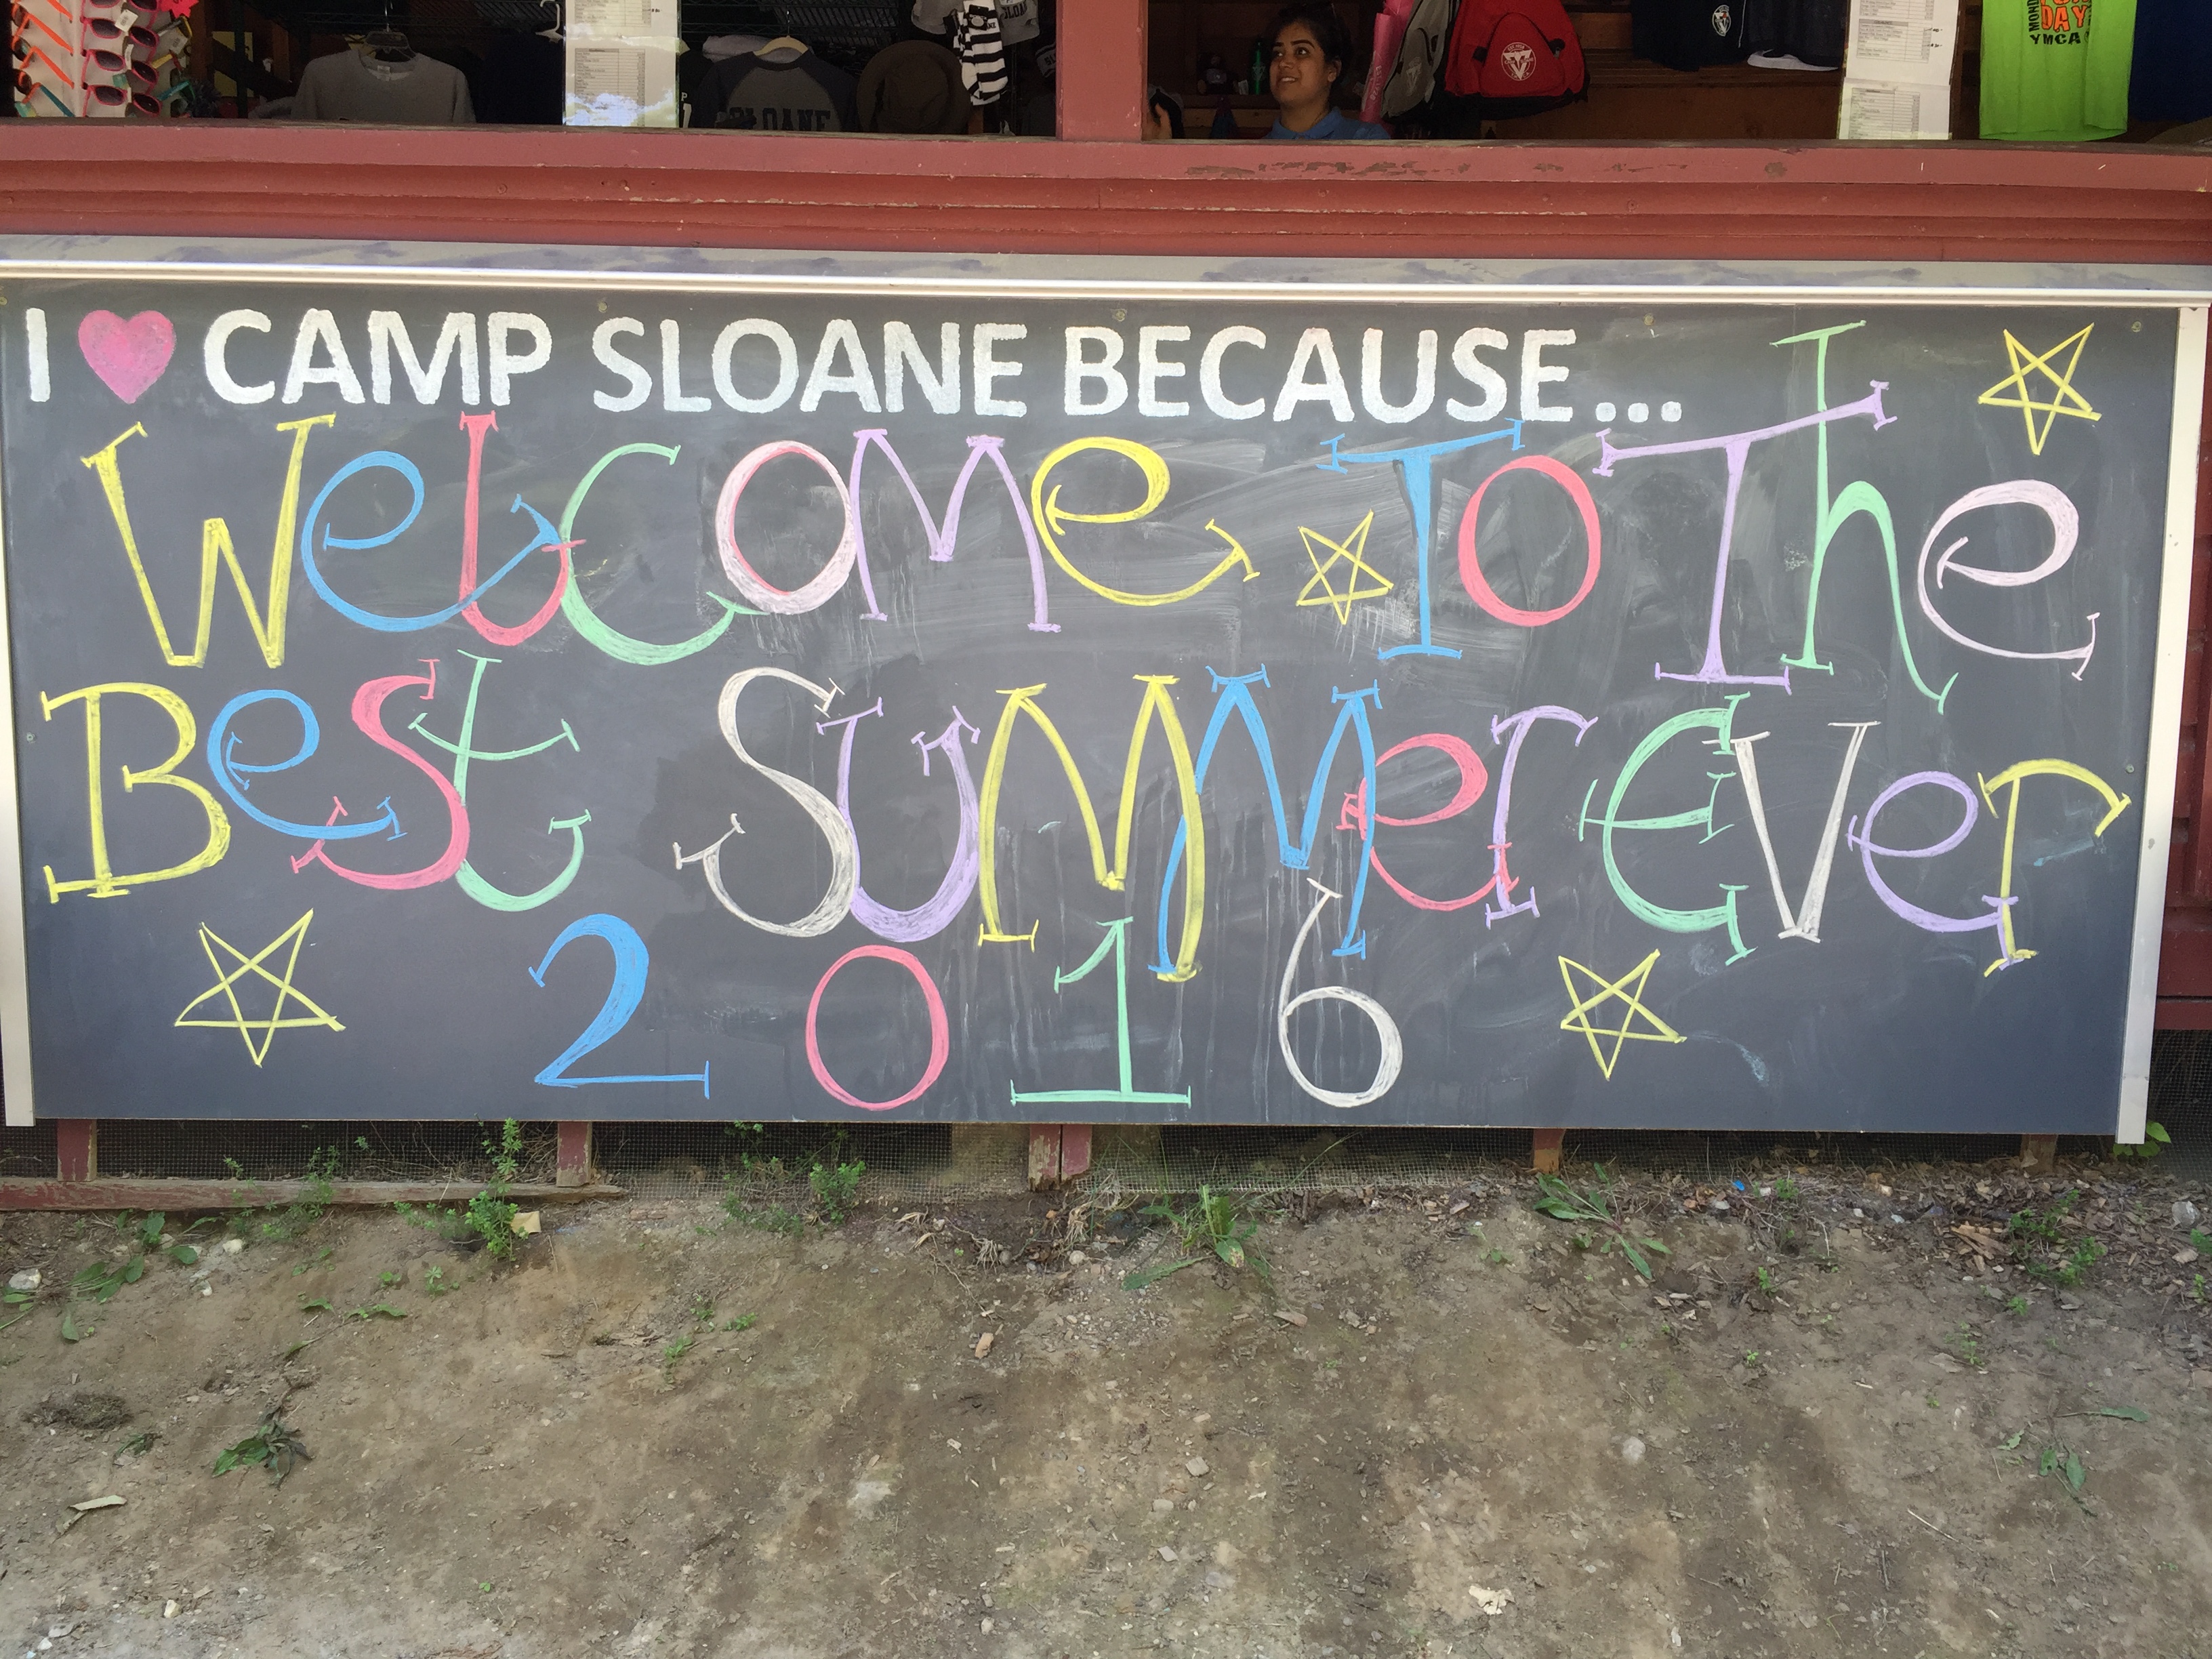 SLOANE
DAY
YMCA
I ♥ CAMP SLOANE BECAUSE...
Welcome To The
Best Summer Ever
2016